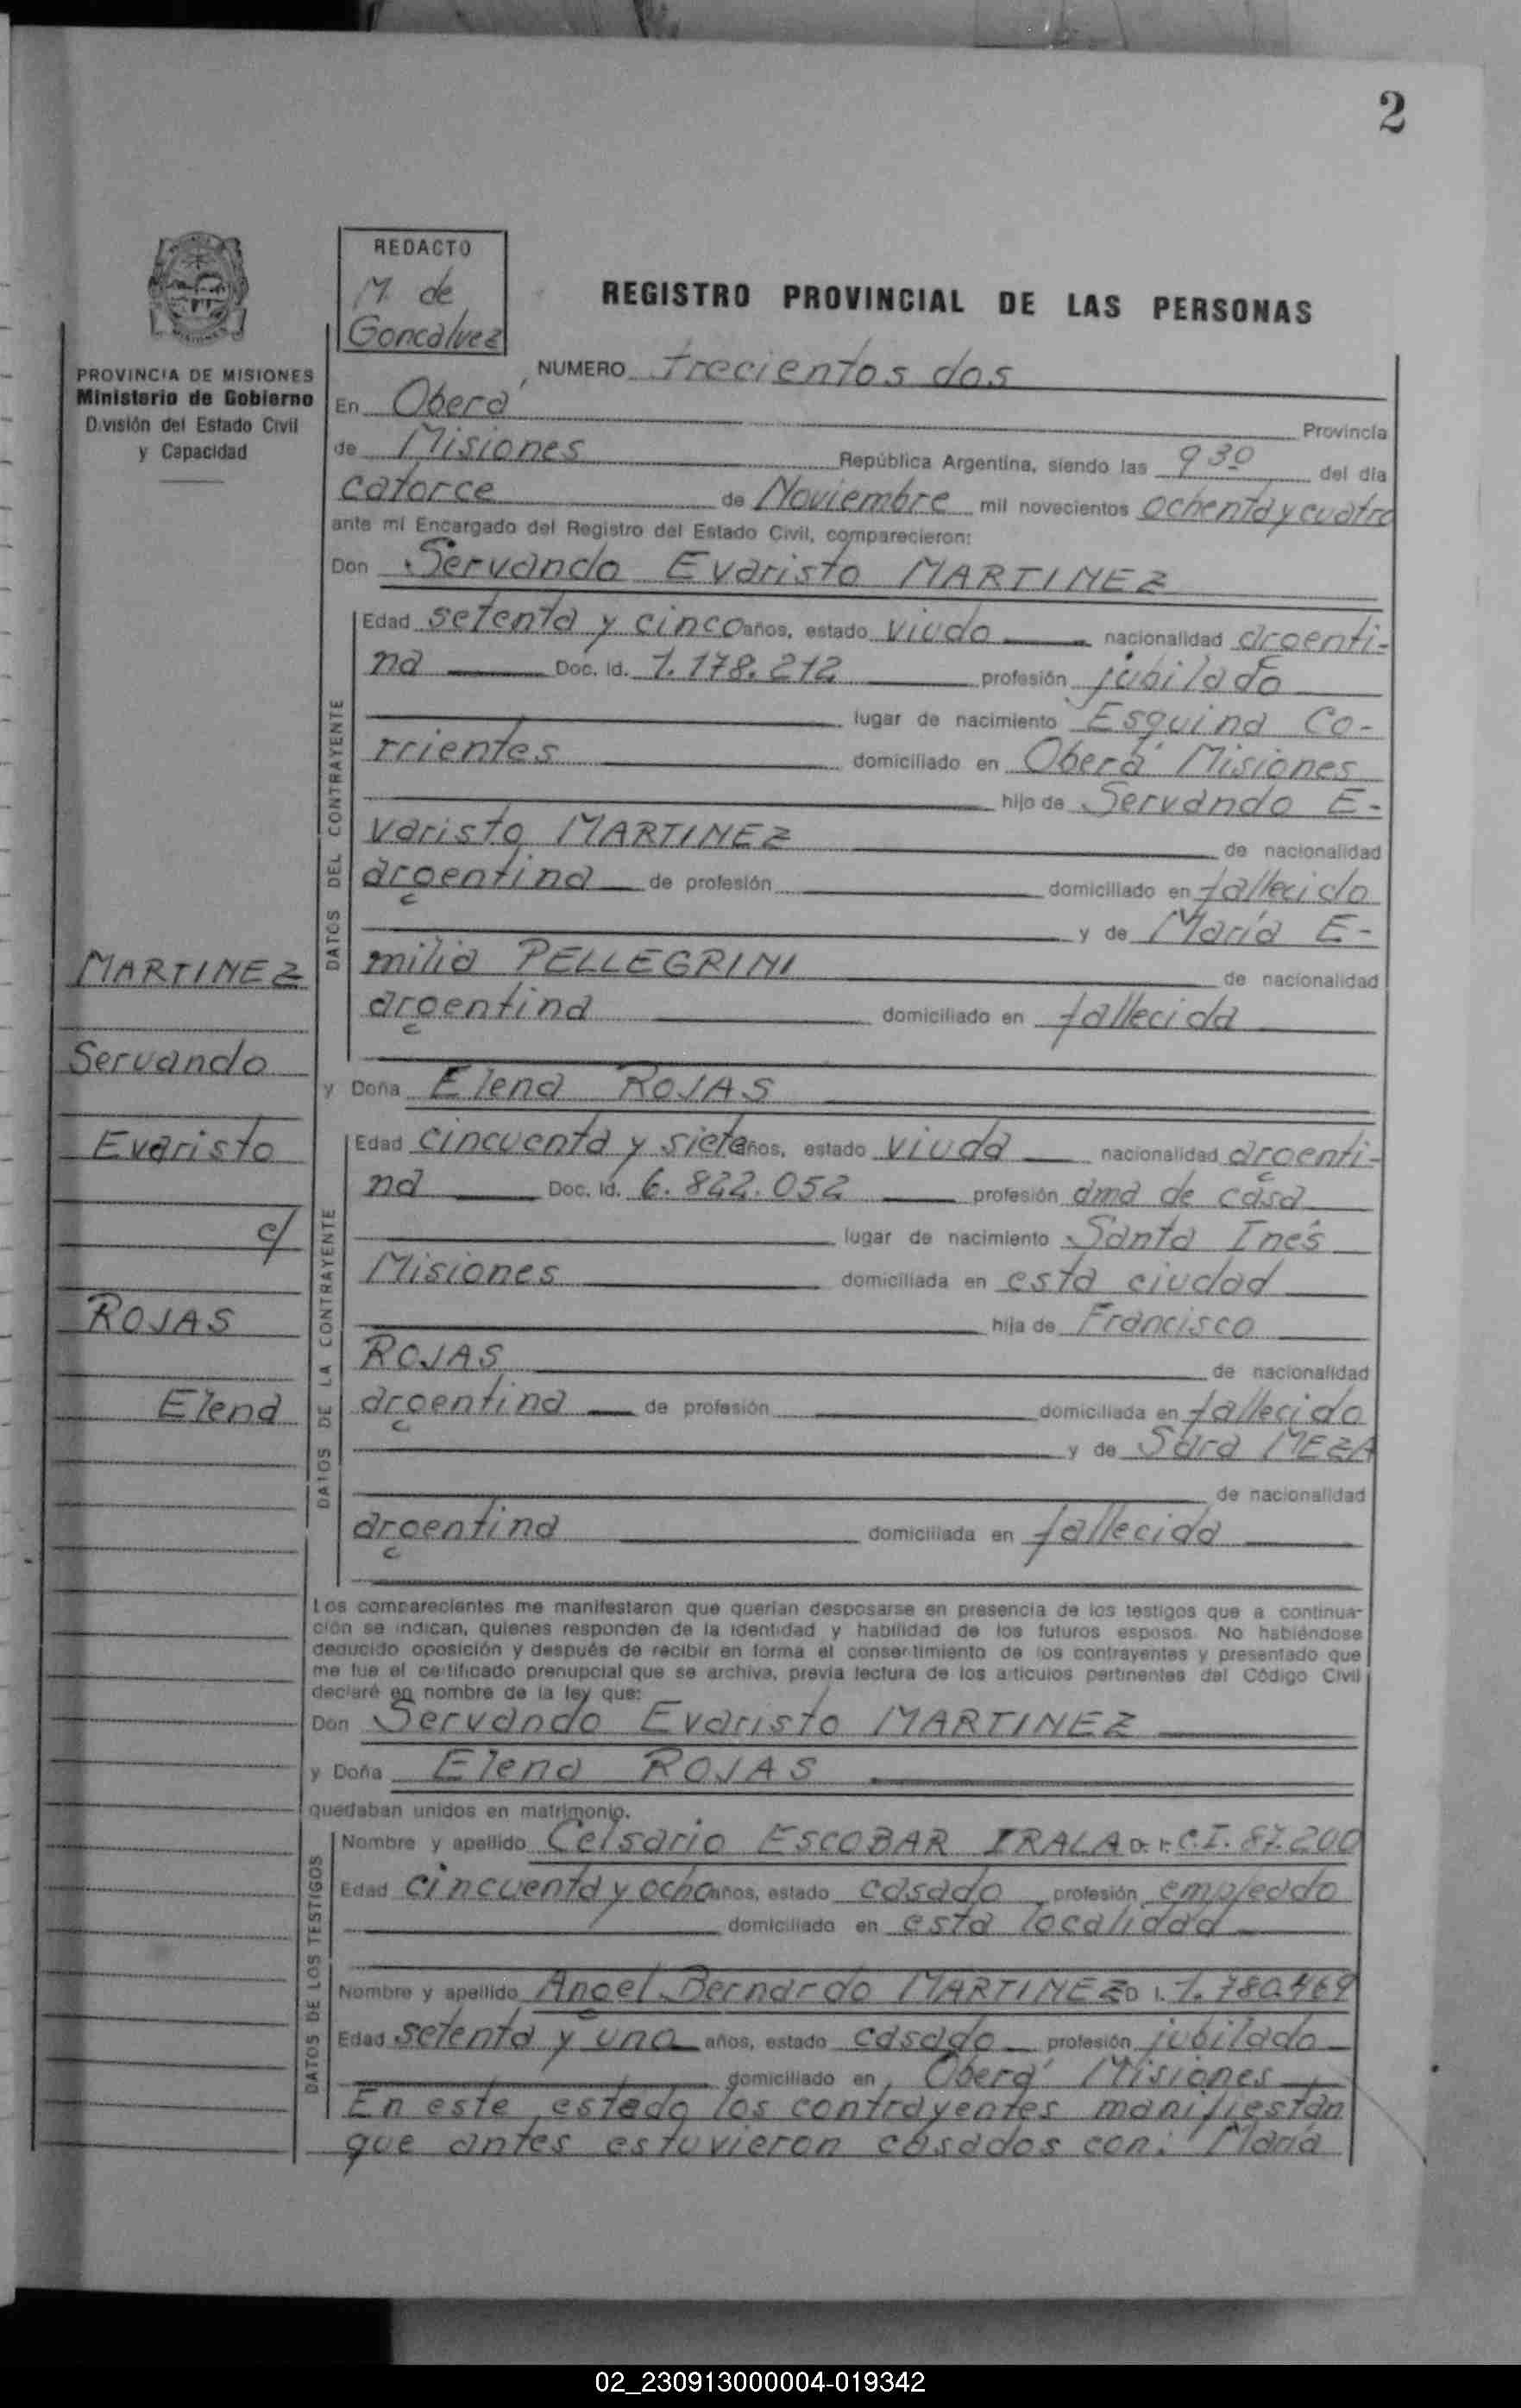 2
REDACTO
M. de
Goncalvez
REGISTRO PROVINCIAL DE LAS PERSONAS
PROVINCIA DE MISIONES
Ministerio de Gobierno
División del Estado Civil
y Capacidad
NUMERO trecientos dos
En Oberá Provincia
de Misiones República Argentina, siendo las 9 30 del día
catorce de Noviembre mil novecientos ochenta y cuatro
ante mí Encargado del Registro del Estado Civil, comparecieron:
Don Servando Evaristo MARTINEZ
DATOS DEL CONTRAYENTE
Edad setenta y cinco años, estado viudo nacionalidad argenti-
na Doc. Id. 1.178.212 profesión jubilado
lugar de nacimiento Esquina Co-
rrientes domiciliado en Oberá Misiones
hijo de Servando E-
varisto MARTINEZ de nacionalidad
argentina de profesión domiciliado en fallecido
y de María E-
milia PELLEGRINI de nacionalidad
argentina domiciliado en fallecida
y Doña Elena ROJAS
DATOS DE LA CONTRAYENTE
Edad cincuenta y siete años, estado viuda nacionalidad argenti-
na Doc. Id. 6.822.052 profesión ama de casa
lugar de nacimiento Santa Inés
Misiones domiciliada en esta ciudad
hija de Francisco
ROJAS de nacionalidad
argentina de profesión domiciliada en fallecido
y de Sara MEZA
de nacionalidad
argentina domiciliada en fallecida
MARTINEZ
Servando
Evaristo
c/
ROJAS
Elena
Los comparecientes me manifestaron que querían desposarse en presencia de los testigos que a continua-
ción se indican, quienes responden de la identidad y habilidad de los futuros esposos. No habiéndose
deducido oposición y después de recibir en forma el consentimiento de los contrayentes y presentado que
me fue el certificado prenupcial que se archiva, previa lectura de los artículos pertinentes del Código Civil
declaré en nombre de la ley que:
Don Servando Evaristo MARTINEZ
y Doña Elena ROJAS
quedaban unidos en matrimonio.
DATOS DE LOS TESTIGOS
Nombre y apellido Celsario ESCOBAR IRALA D. I. C.I. 87.200
Edad cincuenta y ocho años, estado casado profesión empleado
domiciliado en esta localidad
Nombre y apellido Angel Bernardo MARTINEZ D. I. 1.780.469
Edad setenta y uno años, estado casado profesión jubilado
domiciliado en Oberá Misiones
En este estado los contrayentes manifiestan
que antes estuvieron casados con: María
02_230913000004-019342